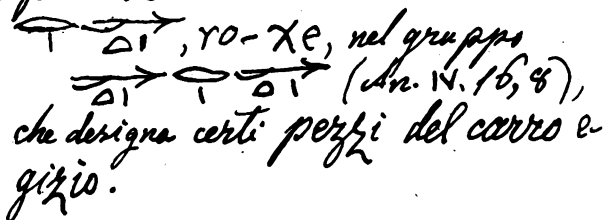 𓂋𓏤 𓌙𓏏𓏤, ro-χe, nel gruppo
𓌙𓏏𓏤 𓂋𓏤 𓌙𓏏𓏤 (An. IV. 16, 8),
che designa certi pezzi del carro e-
gizio.